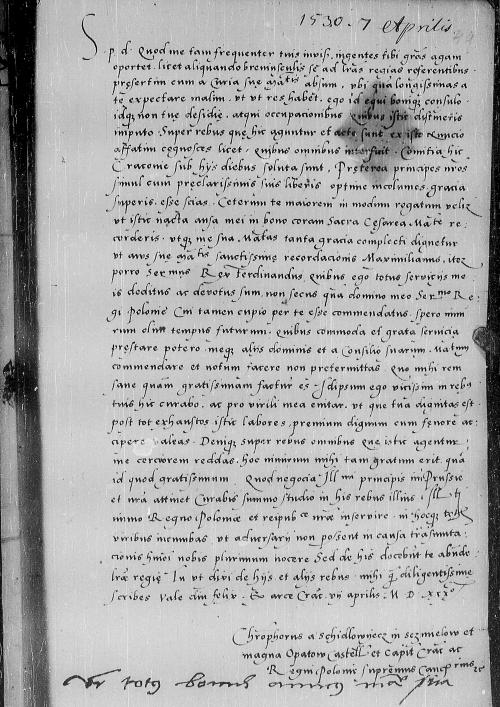 1530. 7 Aprilis
S p. d. Quod me tam frequenter tuis invisis, ingentes tibi gras agam
oportet. licet aliquando breviusculis se ad lras regias referentibus
presertim cum a Curia sue Matis absum, ubi qua longissimas a
te expectare malim. ut ut res habet, ego id equi boniq consulo
idq non tue desidie, atqui occupationibus quibus istic distineris
imputo. Super rebus que hic aguntur et acte sunt ex isto Nuncio
affatim cognosces licet. quibus omnibus interfuit. Comitia hic
Cracovie sub hijs diebus soluta sunt, Preterea principes nros
simul cum preclarissimis suis liberis optime incolumes gracia
superis. esse scias. Ceterum te maiorem in modum rogatum velim
ut istic nacta ansa mei in bono coram Sacra Cesarea Mate re
corderis. utq me sua Matas tanta gracia complecti dignetur
ut avus sue Matis sanctissime recordacionis Maximilianus, itaq
porro Sermus Rex Ferdinandus, quibus ego totus serviciis me
is deditus ac devotus sum, non secus qua domino meo Sermo Re
gi Polonie Cui tamen cupio per te esse commendatus. spero mim
rum olim tempus futurum. quibus commoda et grata servicia
prestare potero. meq aliis dominis et a Consilio suarum Matum
commendare et notum facere non pretermittas. Quo mihi rem
sane quam gratissimam factur es. Idipsum ego vicissim in rebus
tuis hic curabo. ac pro virili mea enitar. ut que tua dignitas est
post tot exhaustos istic labores, premium dignum cum fenore ac
cipere valeas. Deniq super rebus omnibus que istic agentur
me cerciorem reddas. hoc nimirum mihi tam gratum erit quam
id quod gratissimum. Quod negocia Illmi principis in Prussie
et nra attinet Curabis summo studio in his rebus illius Illti
immo Regno Polonie et reipubce nre inservire. in hocq totis
viribus incumbas, ut adversarij non possent in causa transunta
cionis huiusmodi nobis plurimum nocere Sed de his docebunt te abunde
lre regie. Tu ut dixi de hijs et alijs rebus mihi q diligentissime
scribes Vale diu felix. Ex arce Crac. vij aprilis. M D XXXo
Chrophorus a Schidlowyecz in Sczmielow et
magna Opatow Castell et Capit Crac ac
Regni Polonie supremus Cancrius etc
Vr totus bonus amicus manu sua